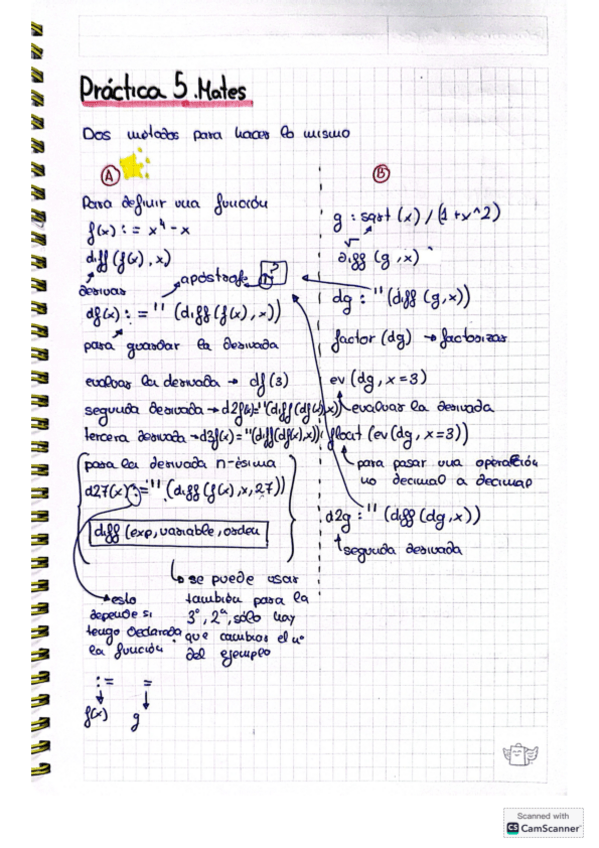 Práctica 5. Mates
Dos métodos para hacer lo mismo
A
Para definir una función
f(x) := x^4 - x
diff (f(x), x)
derivar
apóstrofe
?
df(x) := '' (diff (f(x), x))
para guardar la derivada
evaluar la derivada → df(3)
segunda derivada → d2f(x)='' (diff (df(x), x))
tercera derivada → d3f(x) = ''(diff(df(x),x))
para la derivada n-ésima
d27(x) := '' (diff (f(x), x, 27))
diff (exp, variable, orden
esto
depende si
tengo declarada
la función
se puede usar
también para la
3º, 2ª, sólo hay
que cambiar el nº
del ejemplo
:= =
f(x) g
B
g : sqrt (x) / (1 + x^2)
√
diff (g, x)
dg : '' (diff (g, x))
factor (dg) → factorizar
ev (dg, x = 3)
evaluar la derivada
float (ev (dg, x = 3))
para pasar una operación
no decimal a decimal
d2g : '' (diff (dg, x))
segunda derivada
Scanned with
CS CamScanner